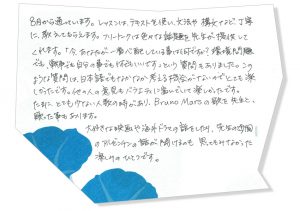 8月から通っています。レッスンは、テキストを使い、文法や構文など丁寧
に、教えてもらえます。フリートークは色々な話題を先生が提供して
くれます。「今、あなたが一番心配している事は何ですか？環境問題
でも、戦争でも自分の事でも何でもいいです」という質問もありました。この
ような質問は、日本語でもなかなか考える機会がないのでとても楽
しかったです。他の人の意見もバラエティに富んでいて楽しかったです。
たまに、とても少ない人数の時があり、Bruno Marsの歌を先生と、
歌った事もあります。
大好きな映画や海外ドラマの話をしたり、先生の母国
のアルゼンチンの話が聞けるのも、思ってもみなかった
楽しみのひとつです。